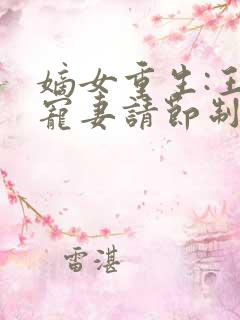 嫡女重生:王
寵妻請節制
雷湛